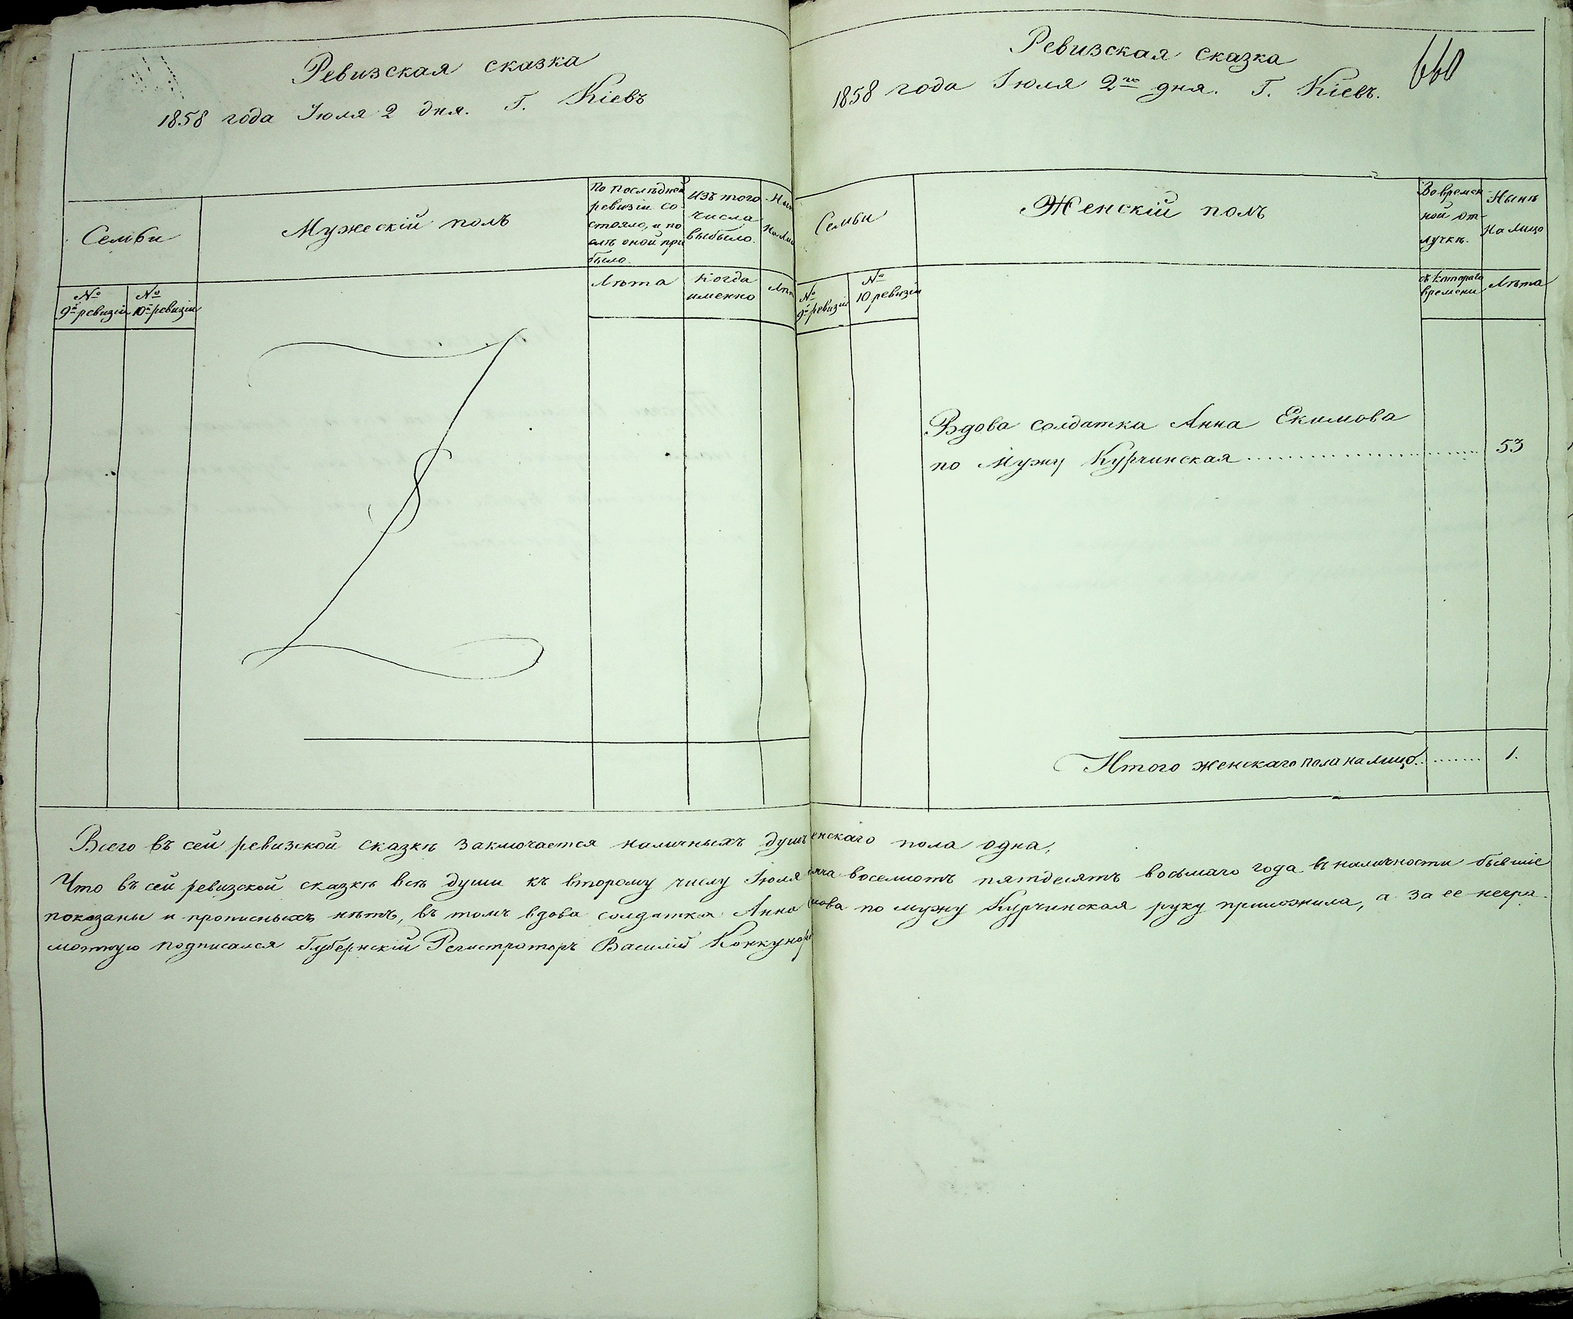 Ревизская сказка
1858 года Іюля 2 дня. Г. Кіевъ
Семьи
Мужескій полъ
По послѣдней
ревизіи со-
стояло, и по
слѣ оной при
было.
Изъ того
числа
выбыло.
№
9й ревизіи
№
10й ревизіи
Лѣта
Когда
именно
Всего въ сей ревизской сказкѣ заключается наличныхъ душъ
Что въ сей ревизской сказкѣ всѣ души къ второму числу Іюля
показаны и прописныхъ нѣтъ, въ томъ вдова солдатка Анна
мотную подписался Губернскій Регистраторъ Василій
660
Ревизская сказка
1858 года Іюля 2го дня. Г. Кіевъ.
Семьи
Женскій полъ
Во времен-
ной от-
лучкѣ.
Нынѣ
на лицо
№
9й ревизіи
№
10 ревизіи
съ котораго
времени
Лѣта
Вдова солдатка Анна Екимова
по мужу Курчинская
53
Итого женскаго пола на лицо
1.
енскаго пола одна,
восемсотъ пятдесятъ восьмаго года въ наличности бывшіе
мова по мужу Курчинская руку приложила, а за ее негра-